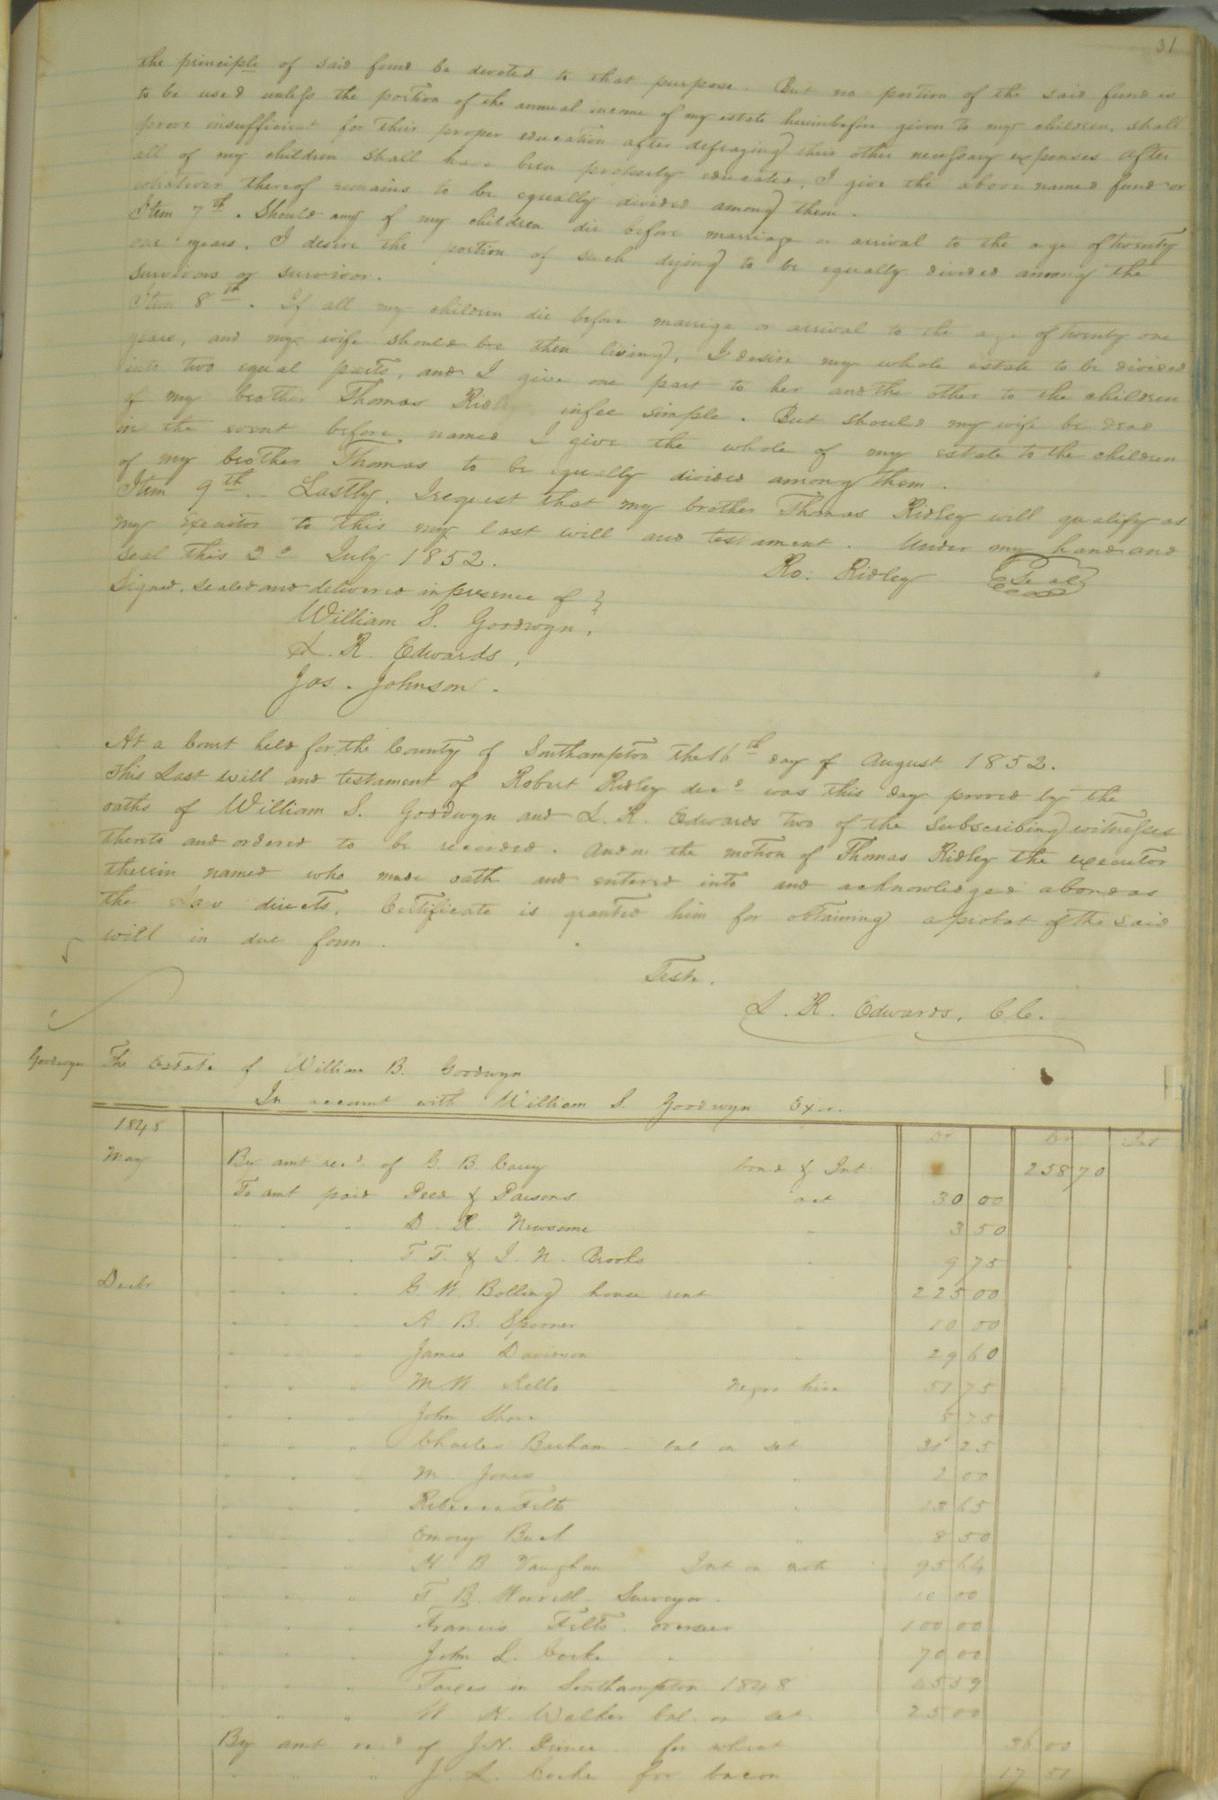 31
the principle of said fund be devoted to that purpose. But no portion of the said fund is
to be used unless the portion of the annual income of my estate hereinbefore given to my children, shall
prove insufficient for their proper education after defraying their other necessary expenses. After
all of my children shall have been properly educated, I give the above named fund or
whatever thereof remains to be equally divided among them.
Item 7th. Should any of my children die before marriage or arrival to the age of twenty
one years, I desire the portion of such dying to be equally divided among the
survivors or survivor.
Item 8th. If all my children die before marriage or arrival to the age of twenty one
years, and my wife should be then living, I desire my whole estate to be divided
into two equal parts, and I give one part to her and the other to the children
of my brother Thomas Ridley in fee simple. But should my wife be dead
in the event before named I give the whole of my estate to the children
of my brother Thomas to be equally divided among them.
Item 9th. Lastly. I request that my brother Thomas Ridley will qualify as
my Executor to this my last will and testament. Under my hand and
seal this 2d July 1852.
Ro: Ridley Seal
Signed, sealed and delivered in presence of }
William S. Goodwyn,
L. R. Edwards,
Jas. Johnson.
At a Court held for the County of Southampton the 16th day of August 1852.
This Last will and testament of Robert Ridley decd was this day proved by the
oaths of William S. Goodwyn and L. R. Edwards two of the subscribing witnesses
thereto and ordered to be recorded. And on the motion of Thomas Ridley the executor
therein named who made oath and entered into and acknowledged a bond as
the Law directs, Certificate is granted him for obtaining a probat of the said
will in due form.
Teste.
L. R. Edwards, C.C.
Goodwyn The Estate of William B. Goodwyn
In account with William S. Goodwyn Exor.
1848 Dr Cr Int
May By amt recd of G B Cary bond & Int 258 70
To amt paid Peed & Parsons act 30 00
" " " D. R. Newsome " 3 50
" " " T T. & I. N. Brooks " 9 75
Decbr " " " G W Bolling house rent 225 00
" " " A B. Spooner " 10 00
" " " James Davidson " 29 60
" " " M W Kello Negro hire 51 75
" " " John " 5 75
" " " Charles Barham bal on act 31 25
" " " M. Jones " 2 00
" " " Rebecca Felts " 13 65
" " " Emory " 8 50
" " " H B Vaughan Int on note 95 64
" " " F B. Worrell Surveyor 10 00
" " " Francis Felts overseer 100 00
" " " John L. Cocke " 70 00
" " " Taxes in Southampton 1848 45 59
" " " W H. Walker bal. on act 25 00
By amt recd of J. N. for wheat 36 00
" " " J. L. Cocke for bacon 17 51